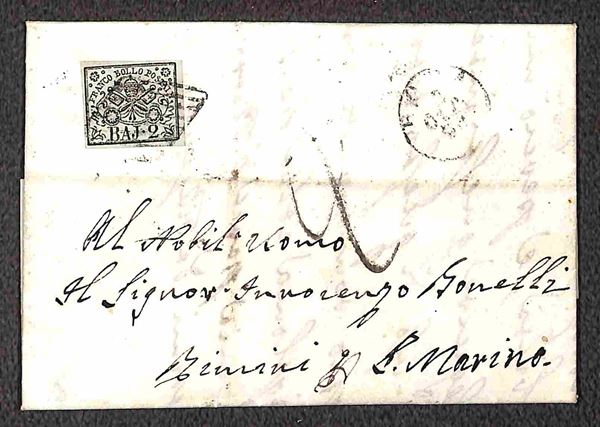 FRANCO BOLLO POSTALE
BAJ 2
2
Al Nobil Uomo
Il Signor Innocenzo Bonelli
Rimini p S. Marino.